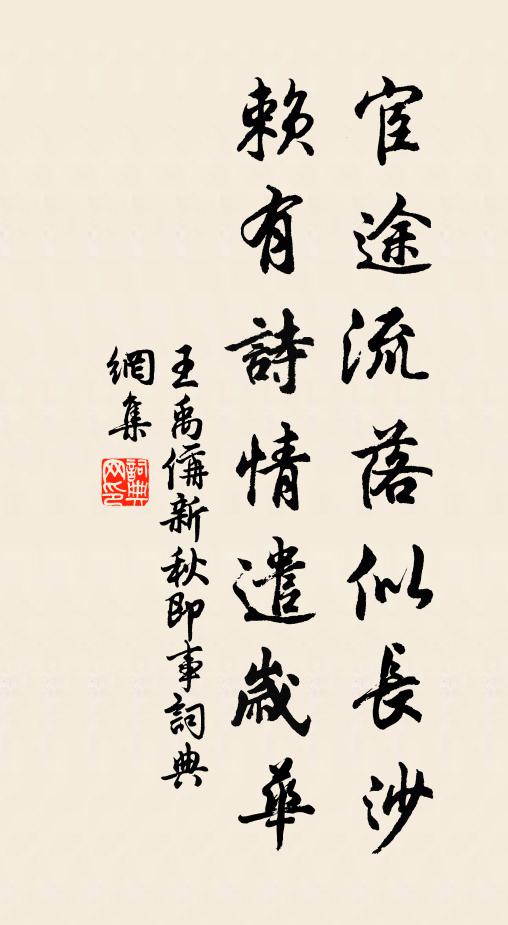 宦途流落似長沙
賴有詩情遣歲華
王禹偁新秋即事詞典
網集
詞典
网印